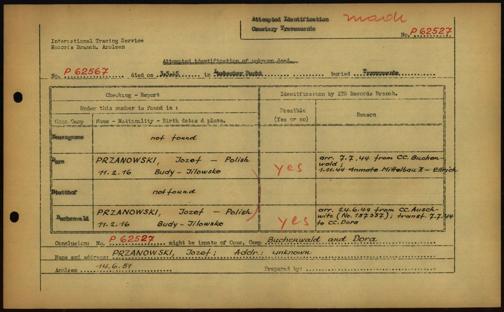 Attempted Identification
Cemetery Travemuende
made
No. P 62527
International Tracing Service
Records Branch, Arolsen
Attempted identification of unknown dead.
No. P 62567 died on 3.5.45 in Luebecker Bucht Buried Travemuende
Checking - Report
Identification by ITS Records Branch.
Under this number is found in :
Conc Camp Name - Nationality - Birth dates & place.
Possible (Yes or no)
Reason
Neuengamme not found
Dora PRZANOWSKI, Jozef - Polish
11.2.16 Budy-Jilowske
yes
arr. 7.7.44 from CC. Buchenwald ;
1.11.44 Inmate Mittelbau II - Ellrich
Stutthof not found
Buchenwald PRZANOWSKI, Jozef - Polish
11.2.16 Budy-Jilowske
yes
arr. 24.6.44 from CC. Auschwitz (No. 187337); transf. 7.7.44 to CC. Dora
Conclusion: No. P 62527 might be inmate of Conc. Camp Buchenwald and Dora.
Name and address: PRZANOWSKI, Jozef; Addr.: unknown
Arolsen 14.6.51 Prepared by: